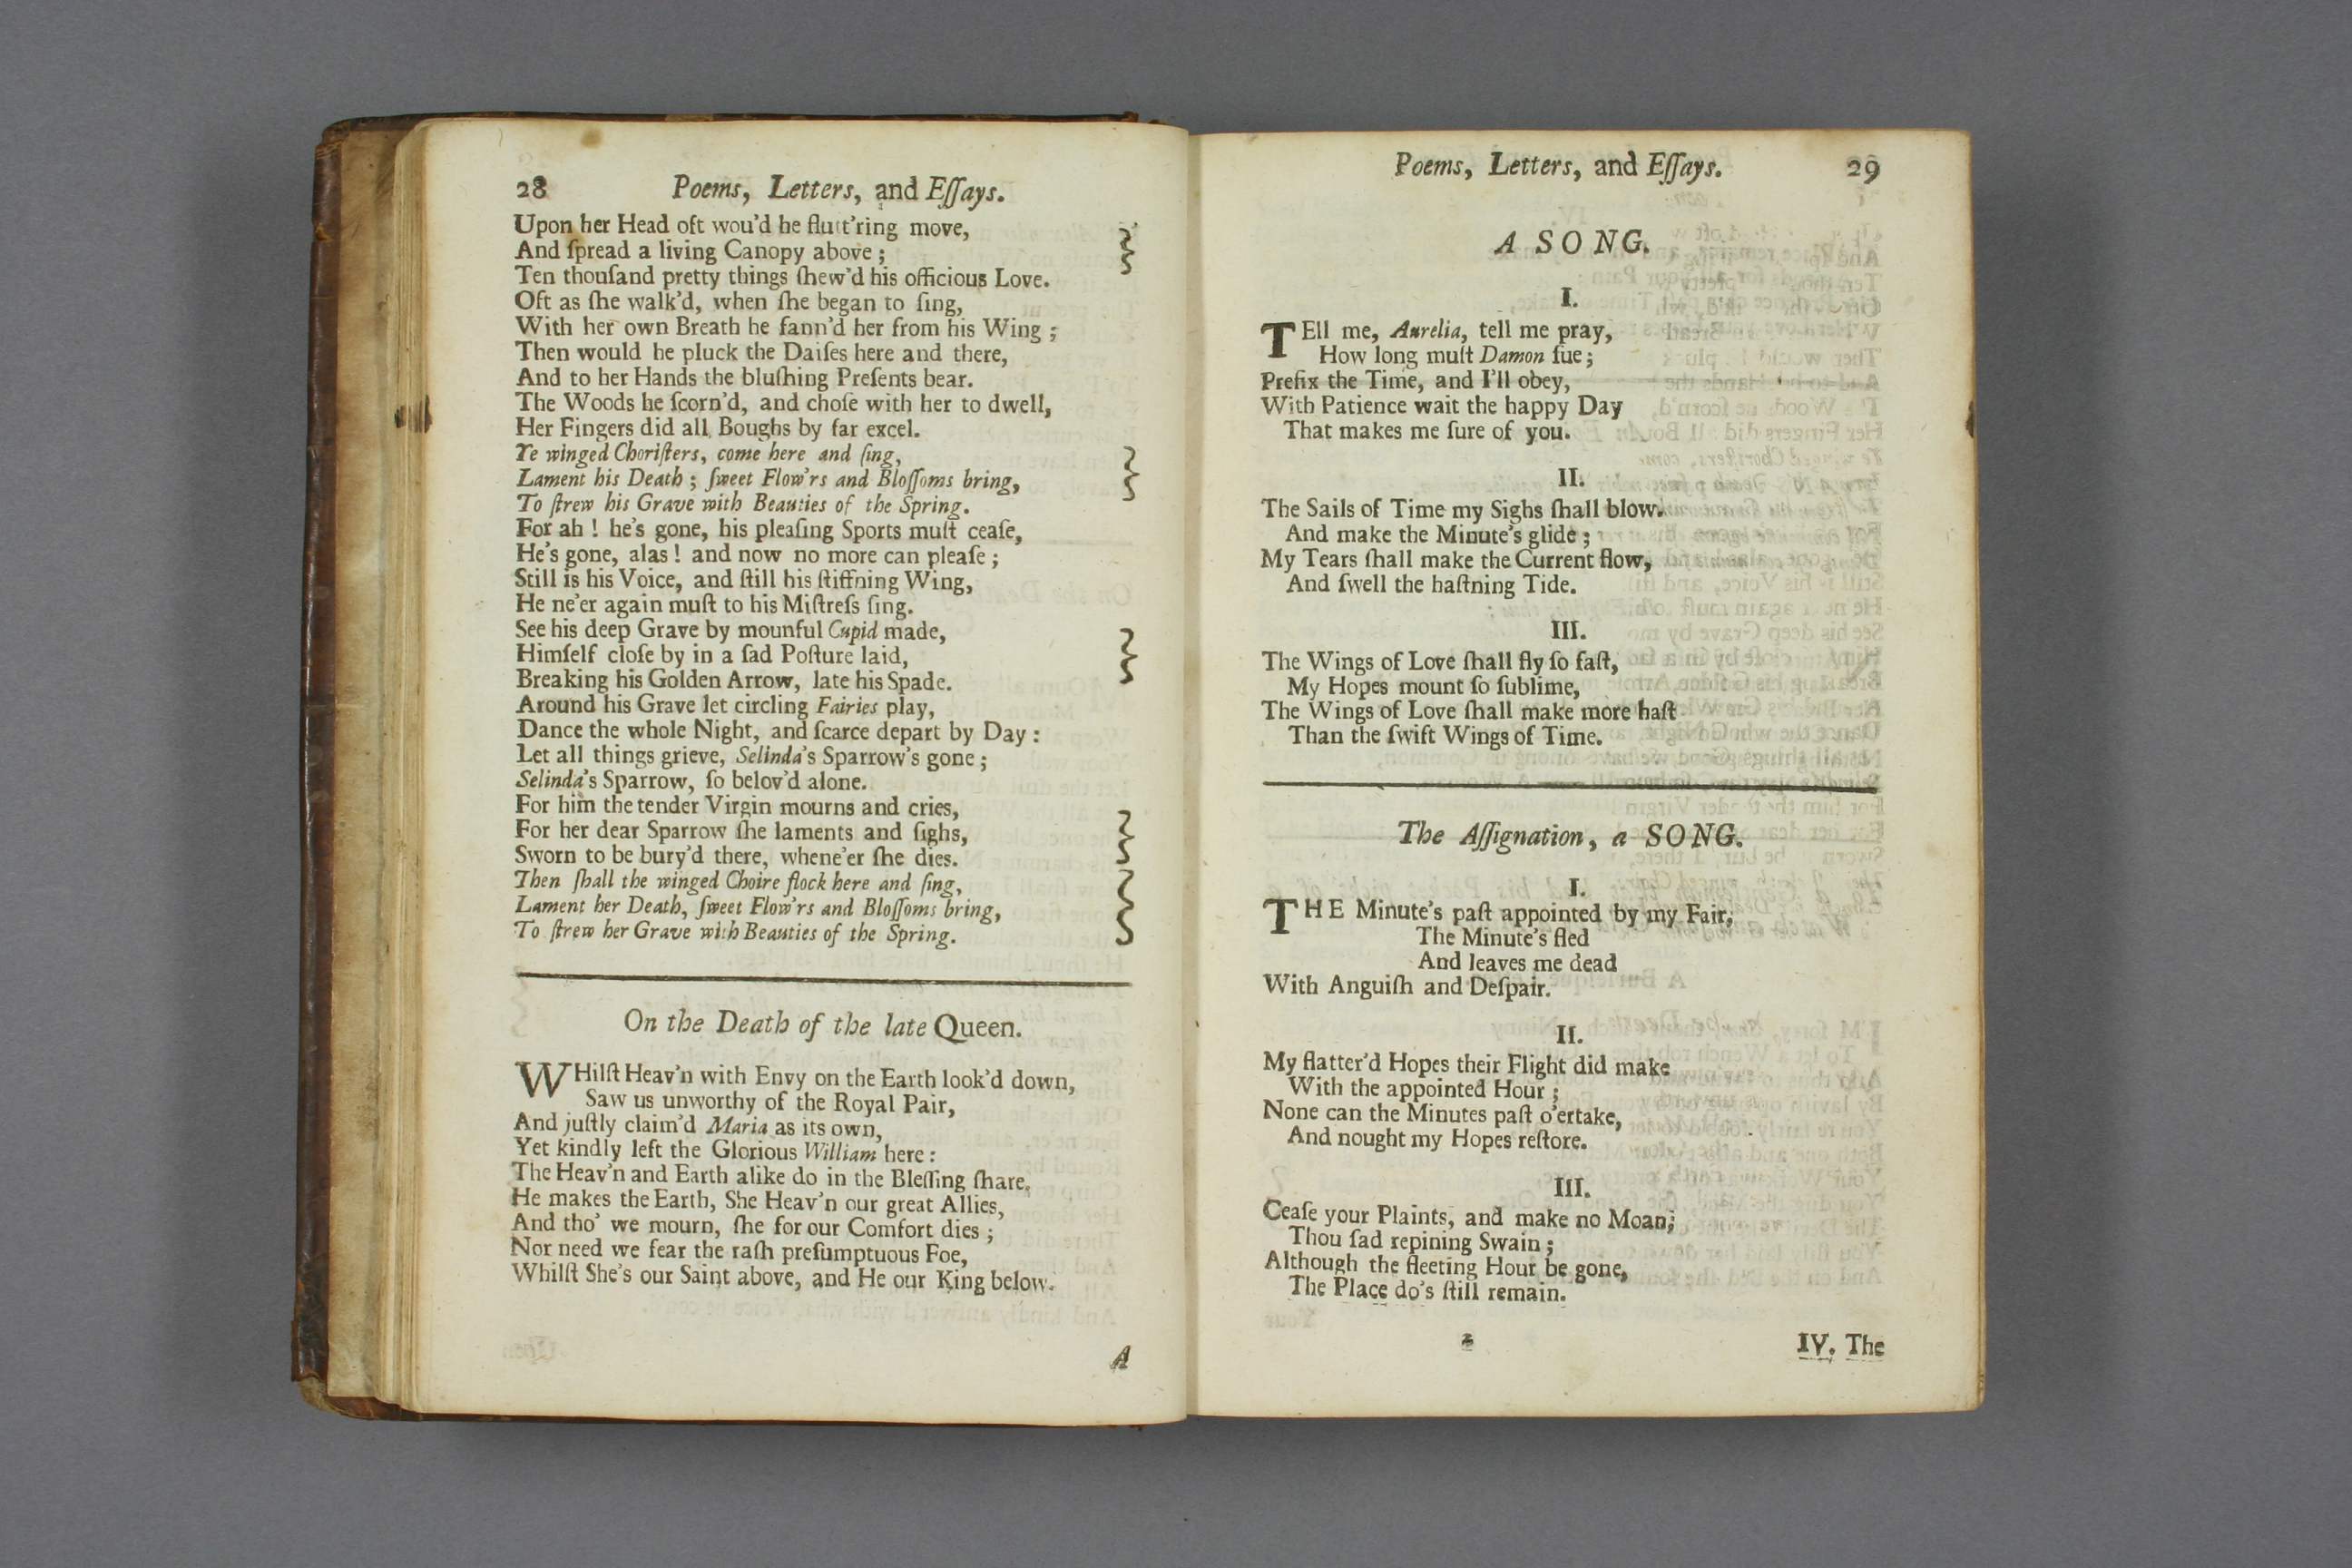 28 Poems, Letters, and Eſſays.
Upon her Head oft wou'd he flutt'ring move,
And ſpread a living Canopy above ;
Ten thouſand pretty things ſhew'd his officious Love.
Oft as ſhe walk'd, when ſhe began to ſing,
With her own Breath he fann'd her from his Wing ;
Then would he pluck the Daiſes here and there,
And to her Hands the bluſhing Preſents bear.
The Woods he ſcorn'd, and choſe with her to dwell,
Her Fingers did all Boughs by far excel.
Ye winged Choriſters, come here and ſing,
Lament his Death ; ſweet Flow'rs and Bloſſoms bring,
To ſtrew his Grave with Beauties of the Spring.
For ah ! he's gone, his pleaſing Sports muſt ceaſe,
He's gone, alas ! and now no more can pleaſe ;
Still is his Voice, and ſtill his ſtiffning Wing,
He ne'er again muſt to his Miſtreſs ſing.
See his deep Grave by mounful Cupid made,
Himſelf cloſe by in a ſad Poſture laid,
Breaking his Golden Arrow, late his Spade.
Around his Grave let circling Fairies play,
Dance the whole Night, and ſcarce depart by Day :
Let all things grieve, Selinda's Sparrow's gone ;
Selinda's Sparrow, ſo belov'd alone.
For him the tender Virgin mourns and cries,
For her dear Sparrow ſhe laments and ſighs,
Sworn to be bury'd there, whene'er ſhe dies.
Then ſhall the winged Choire flock here and ſing,
Lament her Death, ſweet Flow'rs and Bloſſoms bring,
To ſtrew her Grave with Beauties of the Spring.
On the Death of the late Queen.
WHilſt Heav'n with Envy on the Earth look'd down,
Saw us unworthy of the Royal Pair,
And juſtly claim'd Maria as its own,
Yet kindly left the Glorious William here :
The Heav'n and Earth alike do in the Bleſſing ſhare,
He makes the Earth, She Heav'n our great Allies,
And tho' we mourn, ſhe for our Comfort dies ;
Nor need we fear the raſh preſumptuous Foe,
Whilſt She's our Saint above, and He our King below.
A
Poems, Letters, and Eſſays. 29
A SONG.
I.
TEll me, Aurelia, tell me pray,
How long muſt Damon ſue ;
Prefix the Time, and I'll obey,
With Patience wait the happy Day
That makes me ſure of you.
II.
The Sails of Time my Sighs ſhall blow.
And make the Minute's glide ;
My Tears ſhall make the Current flow,
And ſwell the haſtning Tide.
III.
The Wings of Love ſhall fly ſo faſt,
My Hopes mount ſo ſublime,
The Wings of Love ſhall make more haſt
Than the ſwift Wings of Time.
The Aſſignation, a SONG.
I.
THE Minute's paſt appointed by my Fair,
The Minute's fled
And leaves me dead
With Anguiſh and Deſpair.
II.
My flatter'd Hopes their Flight did make
With the appointed Hour ;
None can the Minutes paſt o'ertake,
And nought my Hopes reſtore.
III.
Ceaſe your Plaints, and make no Moan;
Thou ſad repining Swain ;
Although the fleeting Hour be gone,
The Place do's ſtill remain.
IV. The